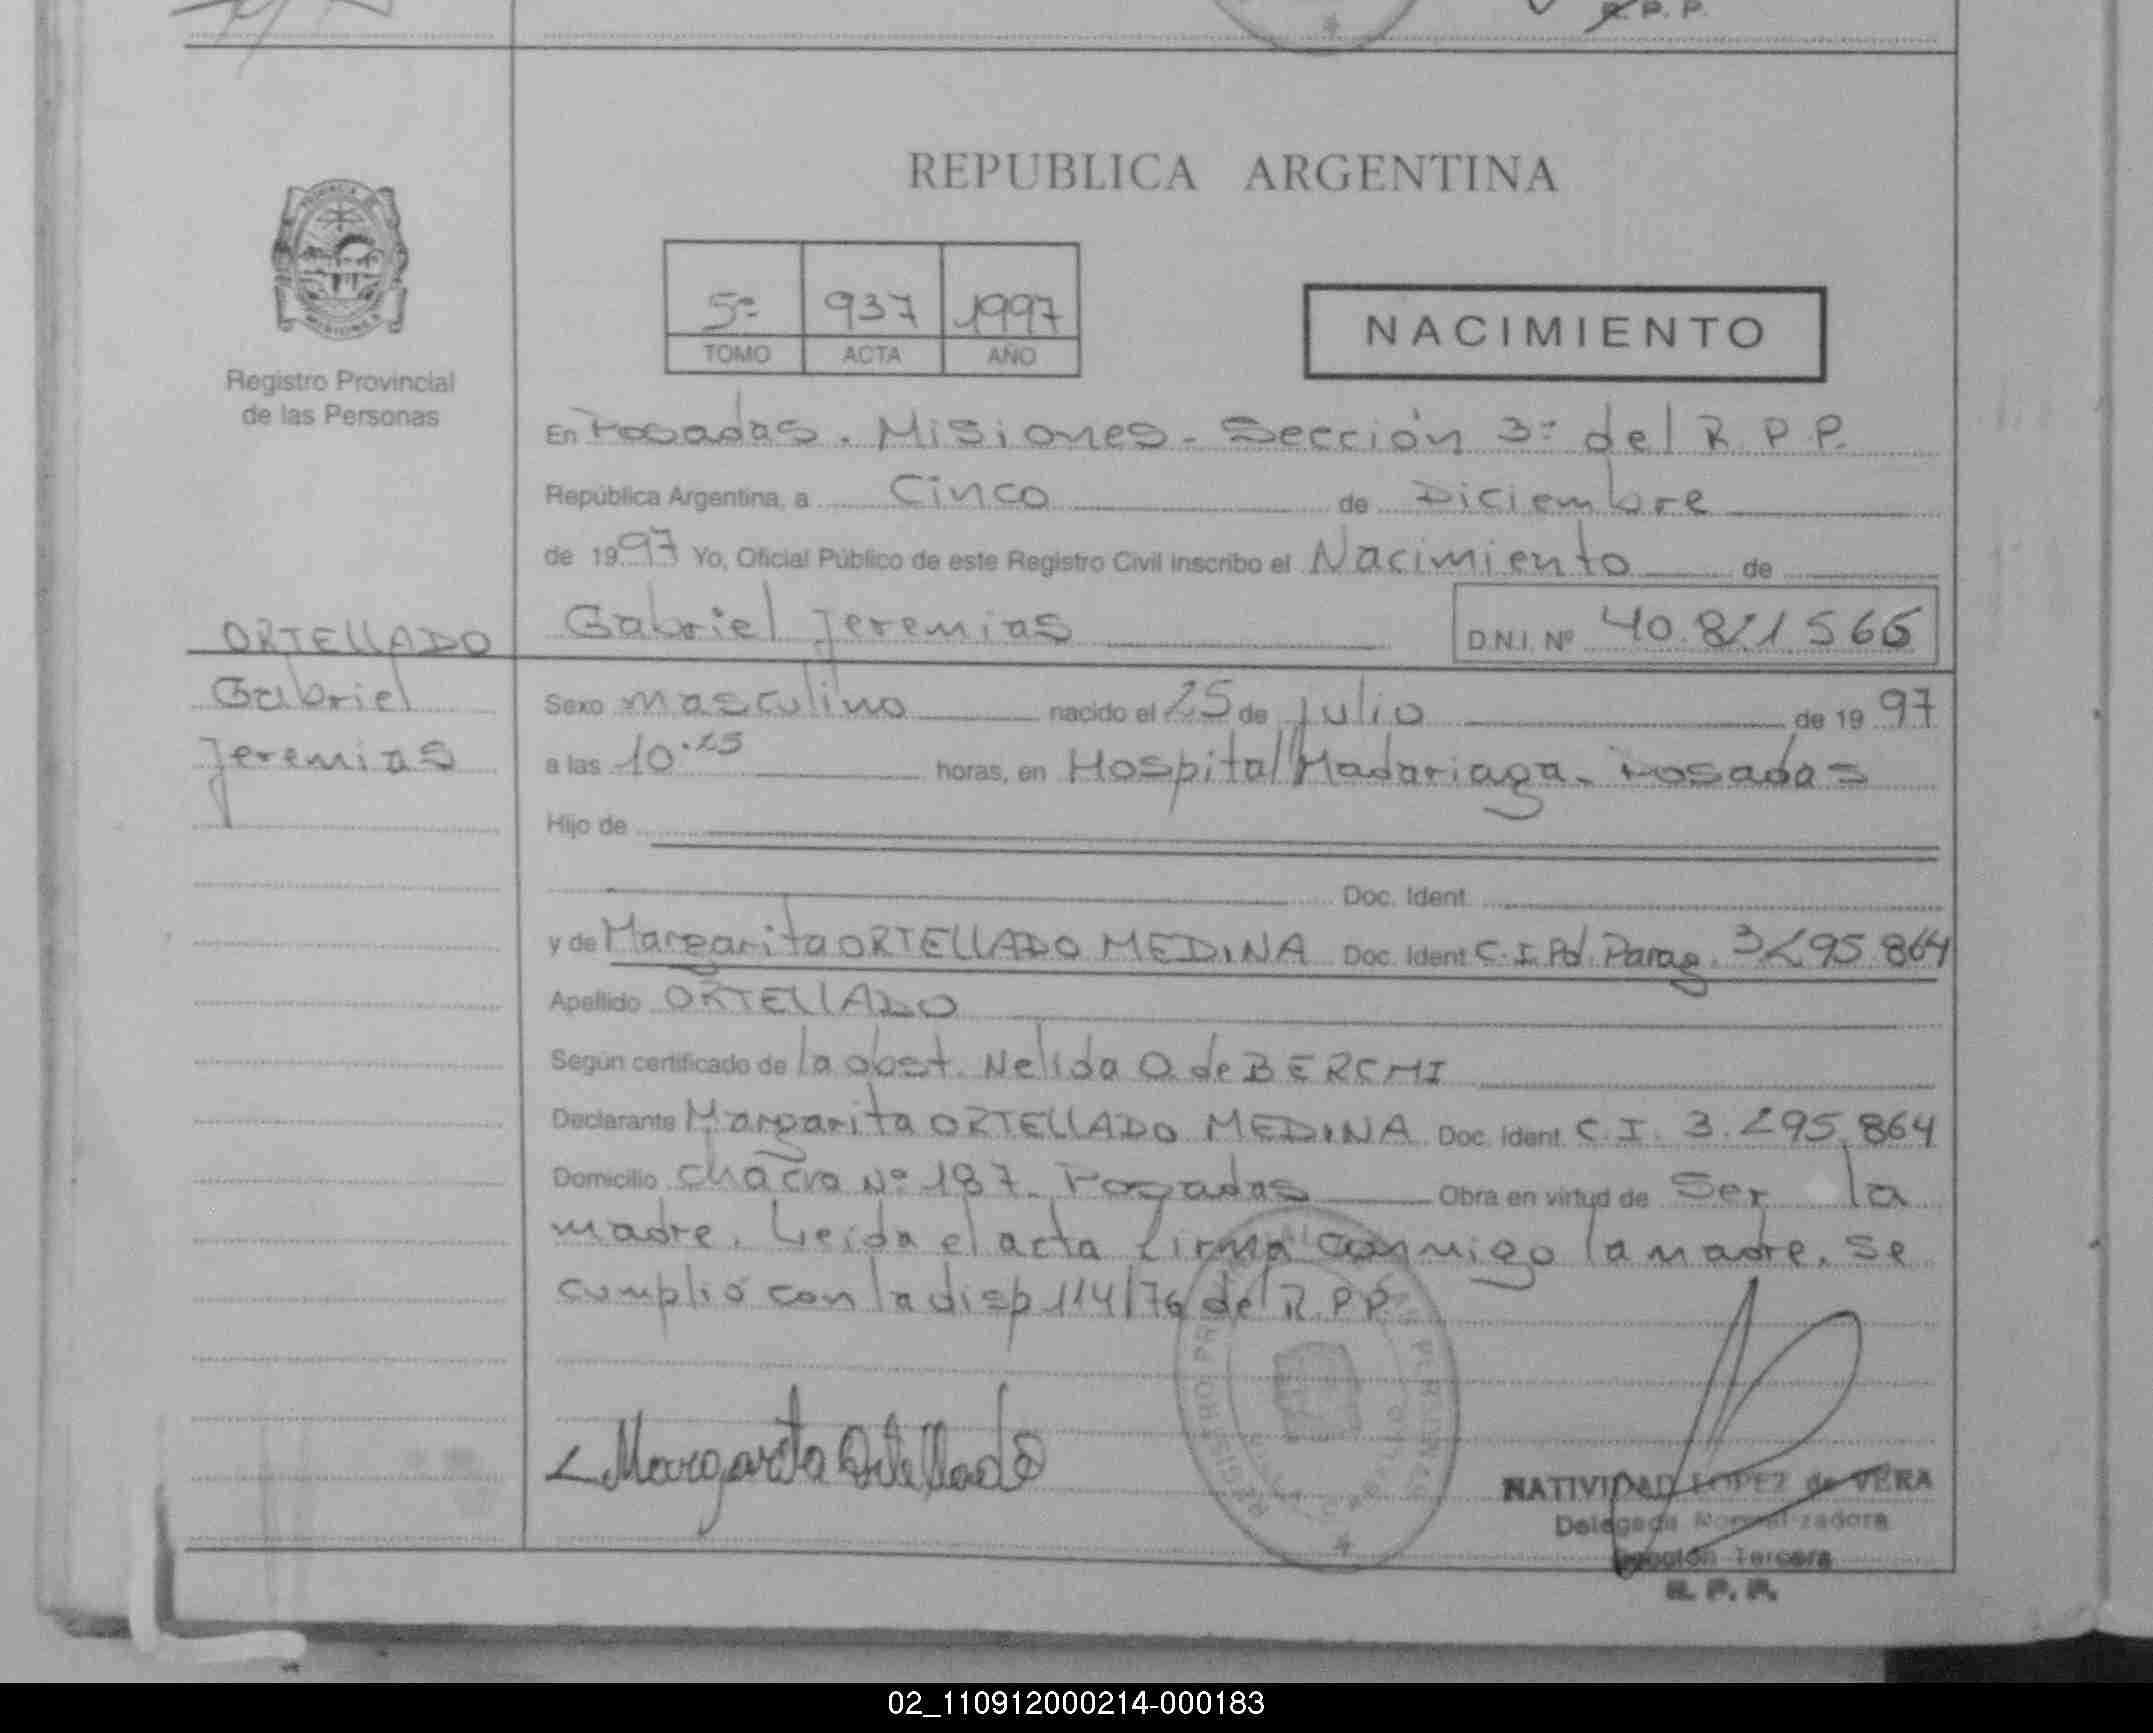 R. P. P.
REPUBLICA ARGENTINA
5º 937 1997
TOMO ACTA AÑO
NACIMIENTO
Registro Provincial
de las Personas
En Posadas. Misiones - Sección 3ª del R. P. P.
República Argentina, a Cinco de Diciembre
de 1997 Yo, Oficial Público de este Registro Civil inscribo el Nacimiento de
Gabriel Jeremias D.N.I. Nº 40.811566
ORTELLADO
Gabriel
Jeremias
Sexo masculino nacido el 25 de julio de 1997
a las 10.25 horas, en Hospital Madariaga - Posadas
Hijo de
Doc. Ident.
y de Margarita ORTELLADO MEDINA Doc. Ident C.I. Pol. Parag. 3295864
Apellido ORTELLADO
Según certificado de la obst. Nelida O. de BERCHI
Declarante Margarita ORTELLADO MEDINA Doc. Ident. C.I. 3.295.864
Domicilio chacra Nº 187 - Posadas Obra en virtud de Ser la
madre. Leída el acta firma conmigo la madre. se
cumplió con la disp 114/76 del R.P.P.
Margarita Ortellado
NATIVIDAD LOPEZ de VERA
Delegada Normalizadora
Sección Tercera
R. P. P.
02_110912000214-000183